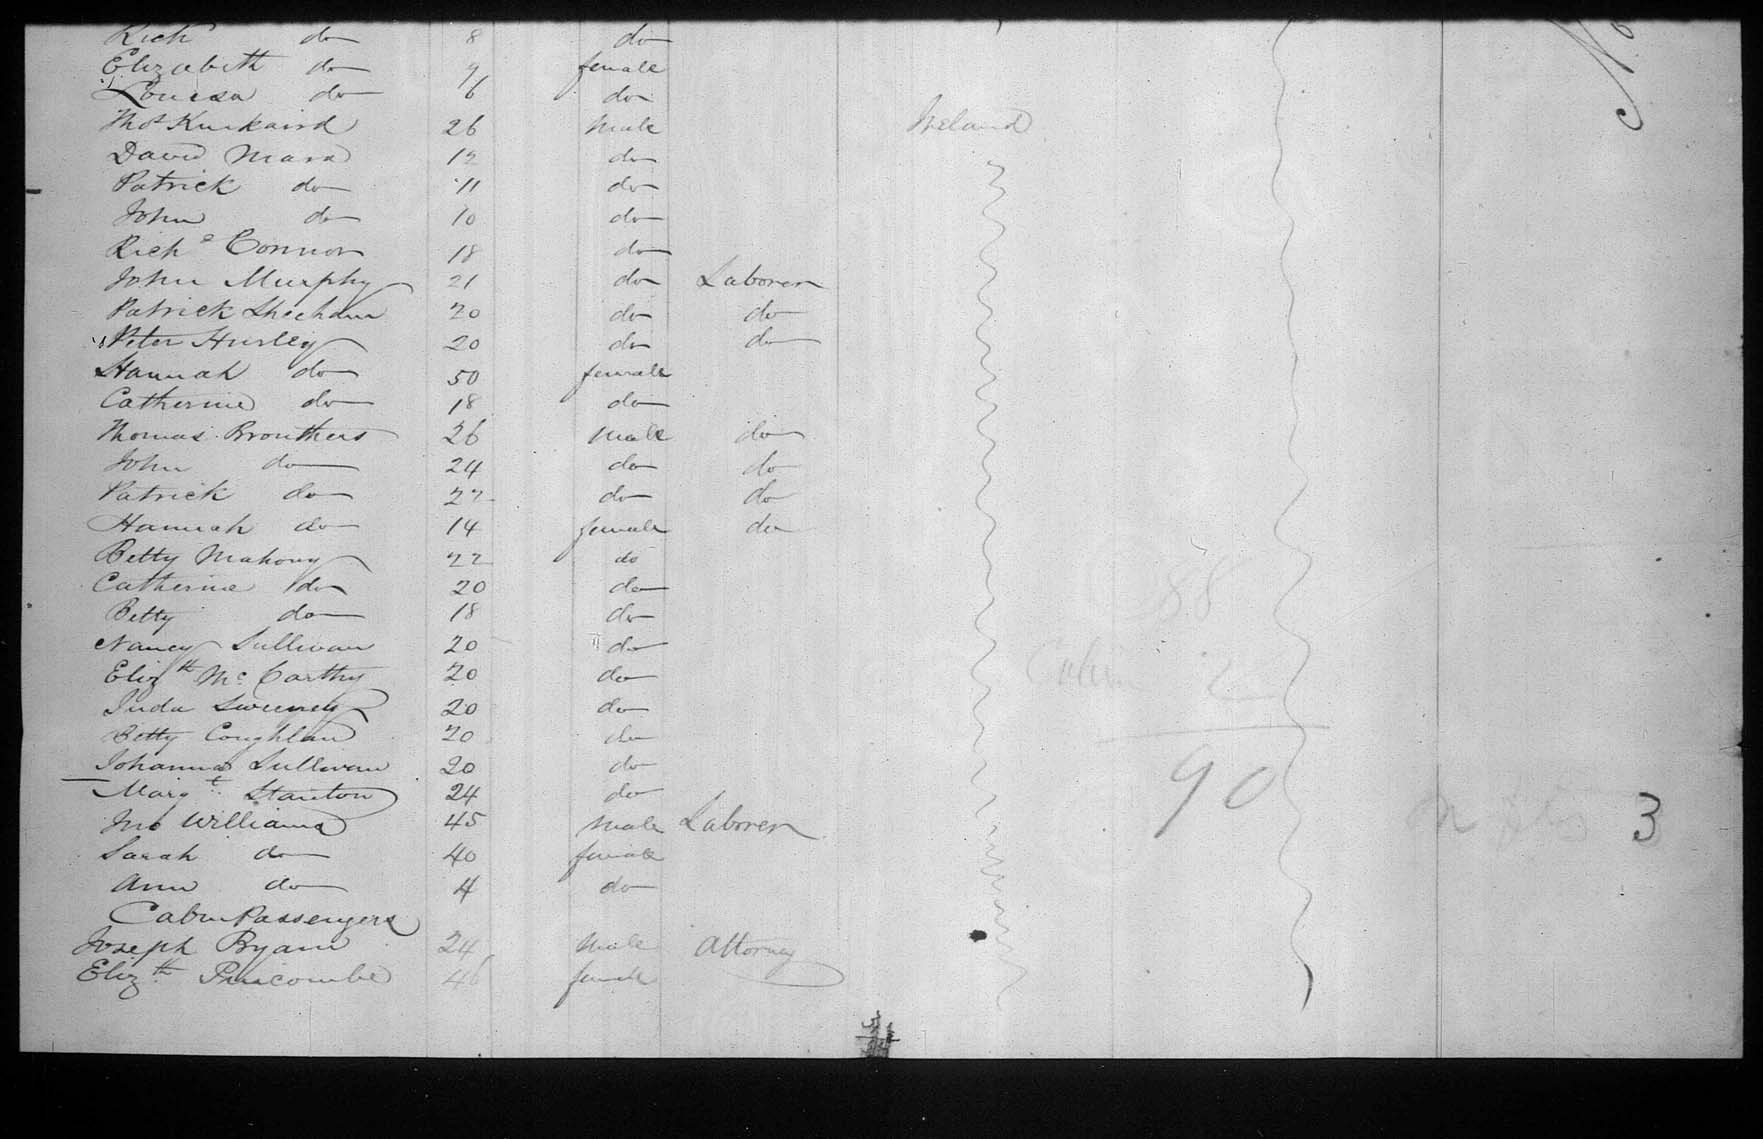 Rich^d do 8 do
Elizabeth do 7 female
Louisa do 6 do
Tho^s Kinkaird 26 Male Ireland
David Mara 12 do
Patrick do 11 do
John do 10 do
Rich^d Connor 18 do
John Murphy 21 do Laborer
Patrick Sheehan 20 do do
Peter Hurley 20 do do
Hannah do 50 female
Catherine do 18 do
Thomas Brouthers 26 Male do
John do 24 do do
Patrick do 22 do do
Hannah do 14 female do
Betty Mahony 22 do
Catherine do 20 do
Betty do 18 do
Nancy Sullivan 20 do
Eliz^th Mc Carthy 20 do
Juda Sweeney 20 do
Betty Coughlan 20 do
Johanna Sullivan 20 do
Marg^t Stanton 24 do
Jno Williams 45 Male Laborer
Sarah do 40 female
Ann do 4 do
Cabin Passengers
Joseph Byam 24 Male Attorney
Eliz^th 46 female
No
88
Cabin 2
90
3